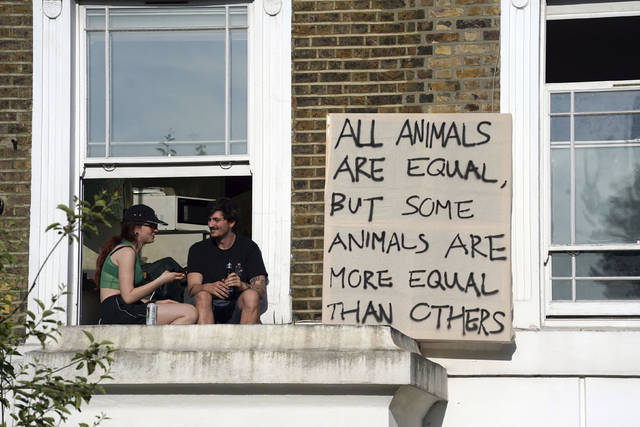 ALL ANIMALS
ARE EQUAL,
BUT SOME
ANIMALS ARE
MORE EQUAL
THAN OTHERS